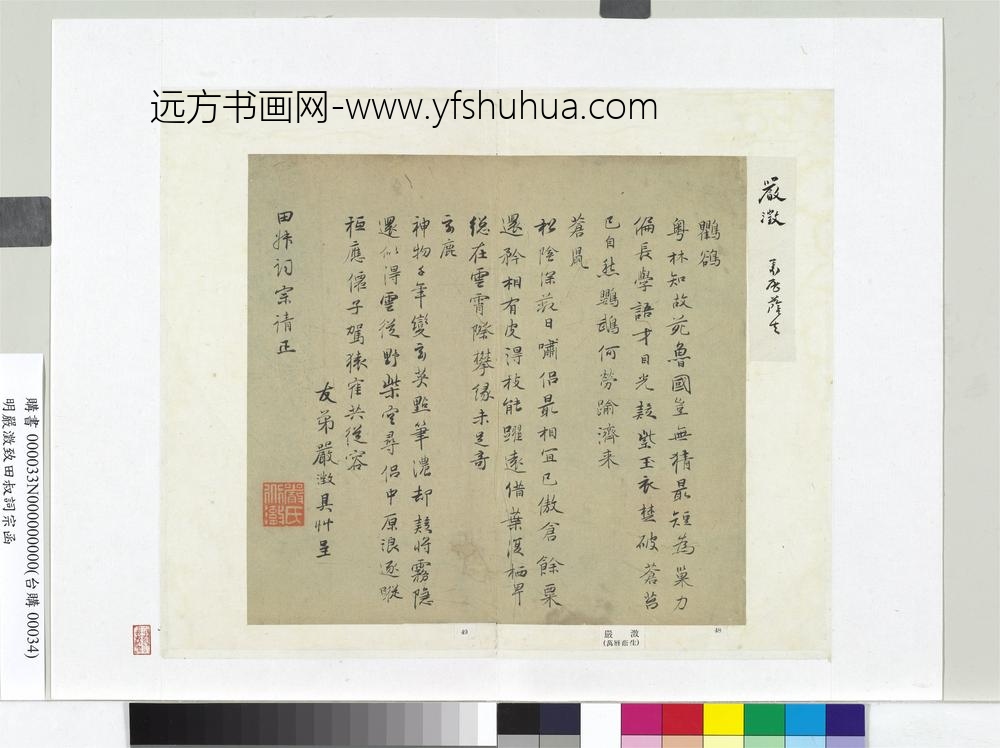 远方书画网-www.yfshuhua.com
嚴澂
萬曆蔭生
鸜鵒
粵林知故苑魯國豈無猜最短為巢力
偏長學語才目光疑紫玉衣楚破蒼苔
已自愁鸚鵡何勞踰濟来
蒼鼠
松陰深蔽日嘯侶最相宜已傲倉餘粟
還矜相有皮得枝能躍遠借葉復栖卑
總在雲霄際攀緣未足奇
玄鹿
神物千年變玄英點筆濃却疑將霧隱
還似得雲從野柴空尋侶中原浪逐蹤
秪應僊子駕猿隺共從容
友弟嚴澂具艸呈
田叔詞宗請正
嚴氏
49
嚴澂
(萬曆蔭生)
48
購書 000033N000000000(台購 00034)
明嚴澂致田叔詞宗函